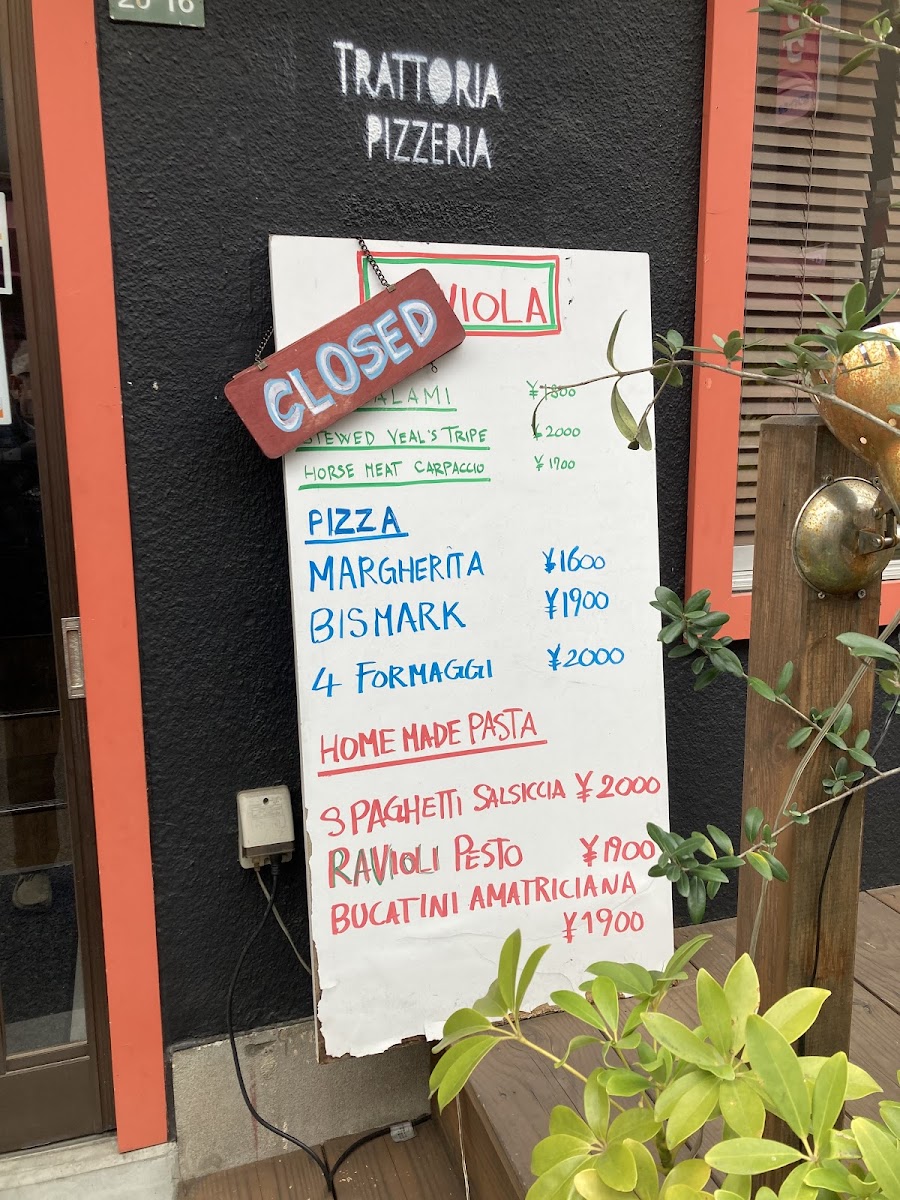 20 16
TRATTORIA
PIZZERIA
CLOSED
VIOLA
SALAMI ¥1800
STEWED VEAL'S TRIPE ¥2000
HORSE MEAT CARPACCIO ¥1700
PIZZA
MARGHERITA ¥1600
BISMARK ¥1900
4 FORMAGGI ¥2000
HOME MADE PASTA
SPAGHETTI SALSICCIA ¥2000
RAVIOLI PESTO ¥1900
BUCATINI AMATRICIANA
¥1900